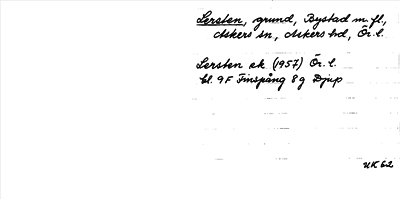 Lersten, grund, Bystad m. fl.,
Askers sn, Askers hd, Ör. l.
Lersten ek (1957) Ör. l.
bl. 9F Finspång 8g Djup
UK 62